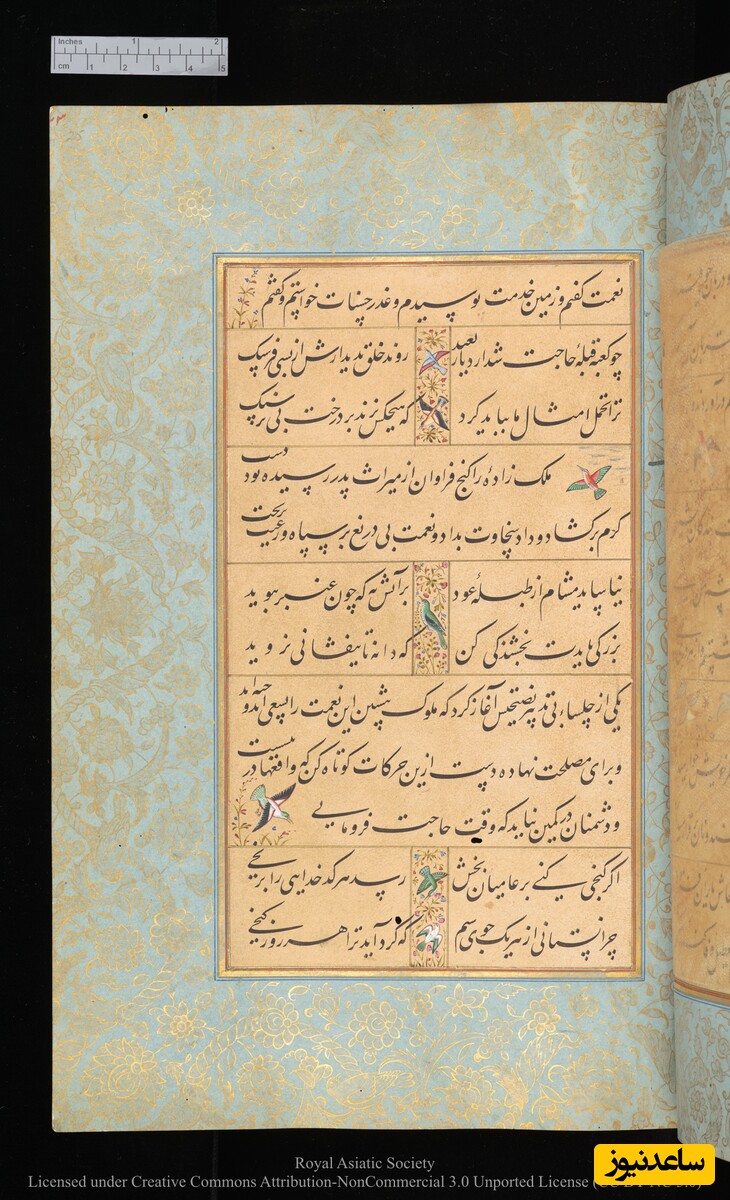 Inches 1 2
cm 1 2 3 4 5
نعمت گفتم و زمین خدمت بوسیدم و عذر جسارت خواستم و گفتم
چو کعبه قبلهٔ حاجت شد از دیار بعید
روند خلق بدیدارش از بسی فرسنگ
ترا تحمل امثال ما بباید کرد
که هیچکس نزند بر درخت بی بر سنگ
ملک زادهٔ را گنج فراوان از میراث پدر رسیده بود دست
کرم برگشاد و داد سخاوت بداد و نعمت بی دریغ بر سپاه و رعیت بریخت
نیاساید مشام از طبلهٔ عود
بر آتش نه که چون عنبر ببوید
بزرگی بایدت بخشندگی کن
که دانه تا نیفشانی نروید
یکی از جلسای بی تدبیر نصیحتش آغاز کرد که ملوک پیشین این نعمت را بسعی اندوخته‌اند
و برای مصلحت نهاده دست ازین حرکات کوتاه کن که واقعها در پیشست
و دشمنان در کمین نباید که وقت حاجت فرو مانی
اگر گنجی کنی بر عامیان بخش
رسد هر کدخدایی را برنجی
چرا نستانی از هر یک جوی سیم
که گرد آید ترا هر روز گنجی
Royal Asiatic Society
Licensed under Creative Commons Attribution-NonCommercial 3.0 Unported License
ساعدنیوز